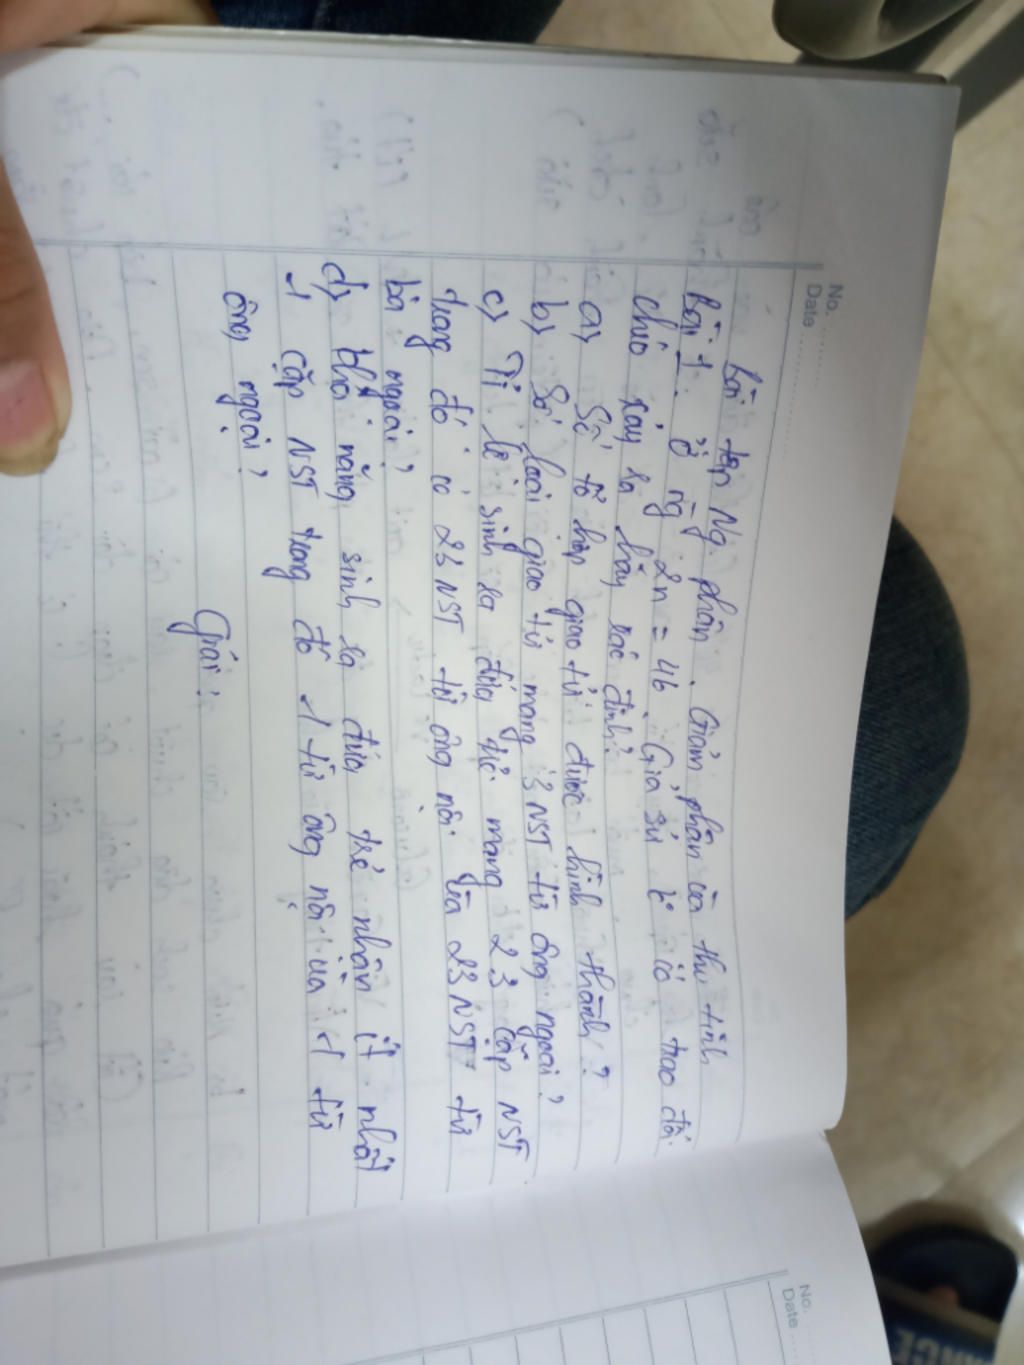 No.
Date
Bài tập Ng. phân. Giảm phân và thụ tinh
Bài 1: Ở ng 2n = 46. Giả sử k có trao đổi
chéo xảy ra hãy xác định:
a) Số tổ hợp giao tử được hình thành?
b) Số loại giao tử mang 3 NST từ ông ngoại?
c) Tỉ lệ sinh ra đứa trẻ mang 23 cặp NST
trong đó có 23 NST từ ông nội và 23 NST từ
bà ngoại?
d) khả năng sinh ra đứa trẻ nhận ít nhất
1 cặp NST trong đó 1 từ ông nội và 1 từ
ông ngoại?
Giải:
No.
Date